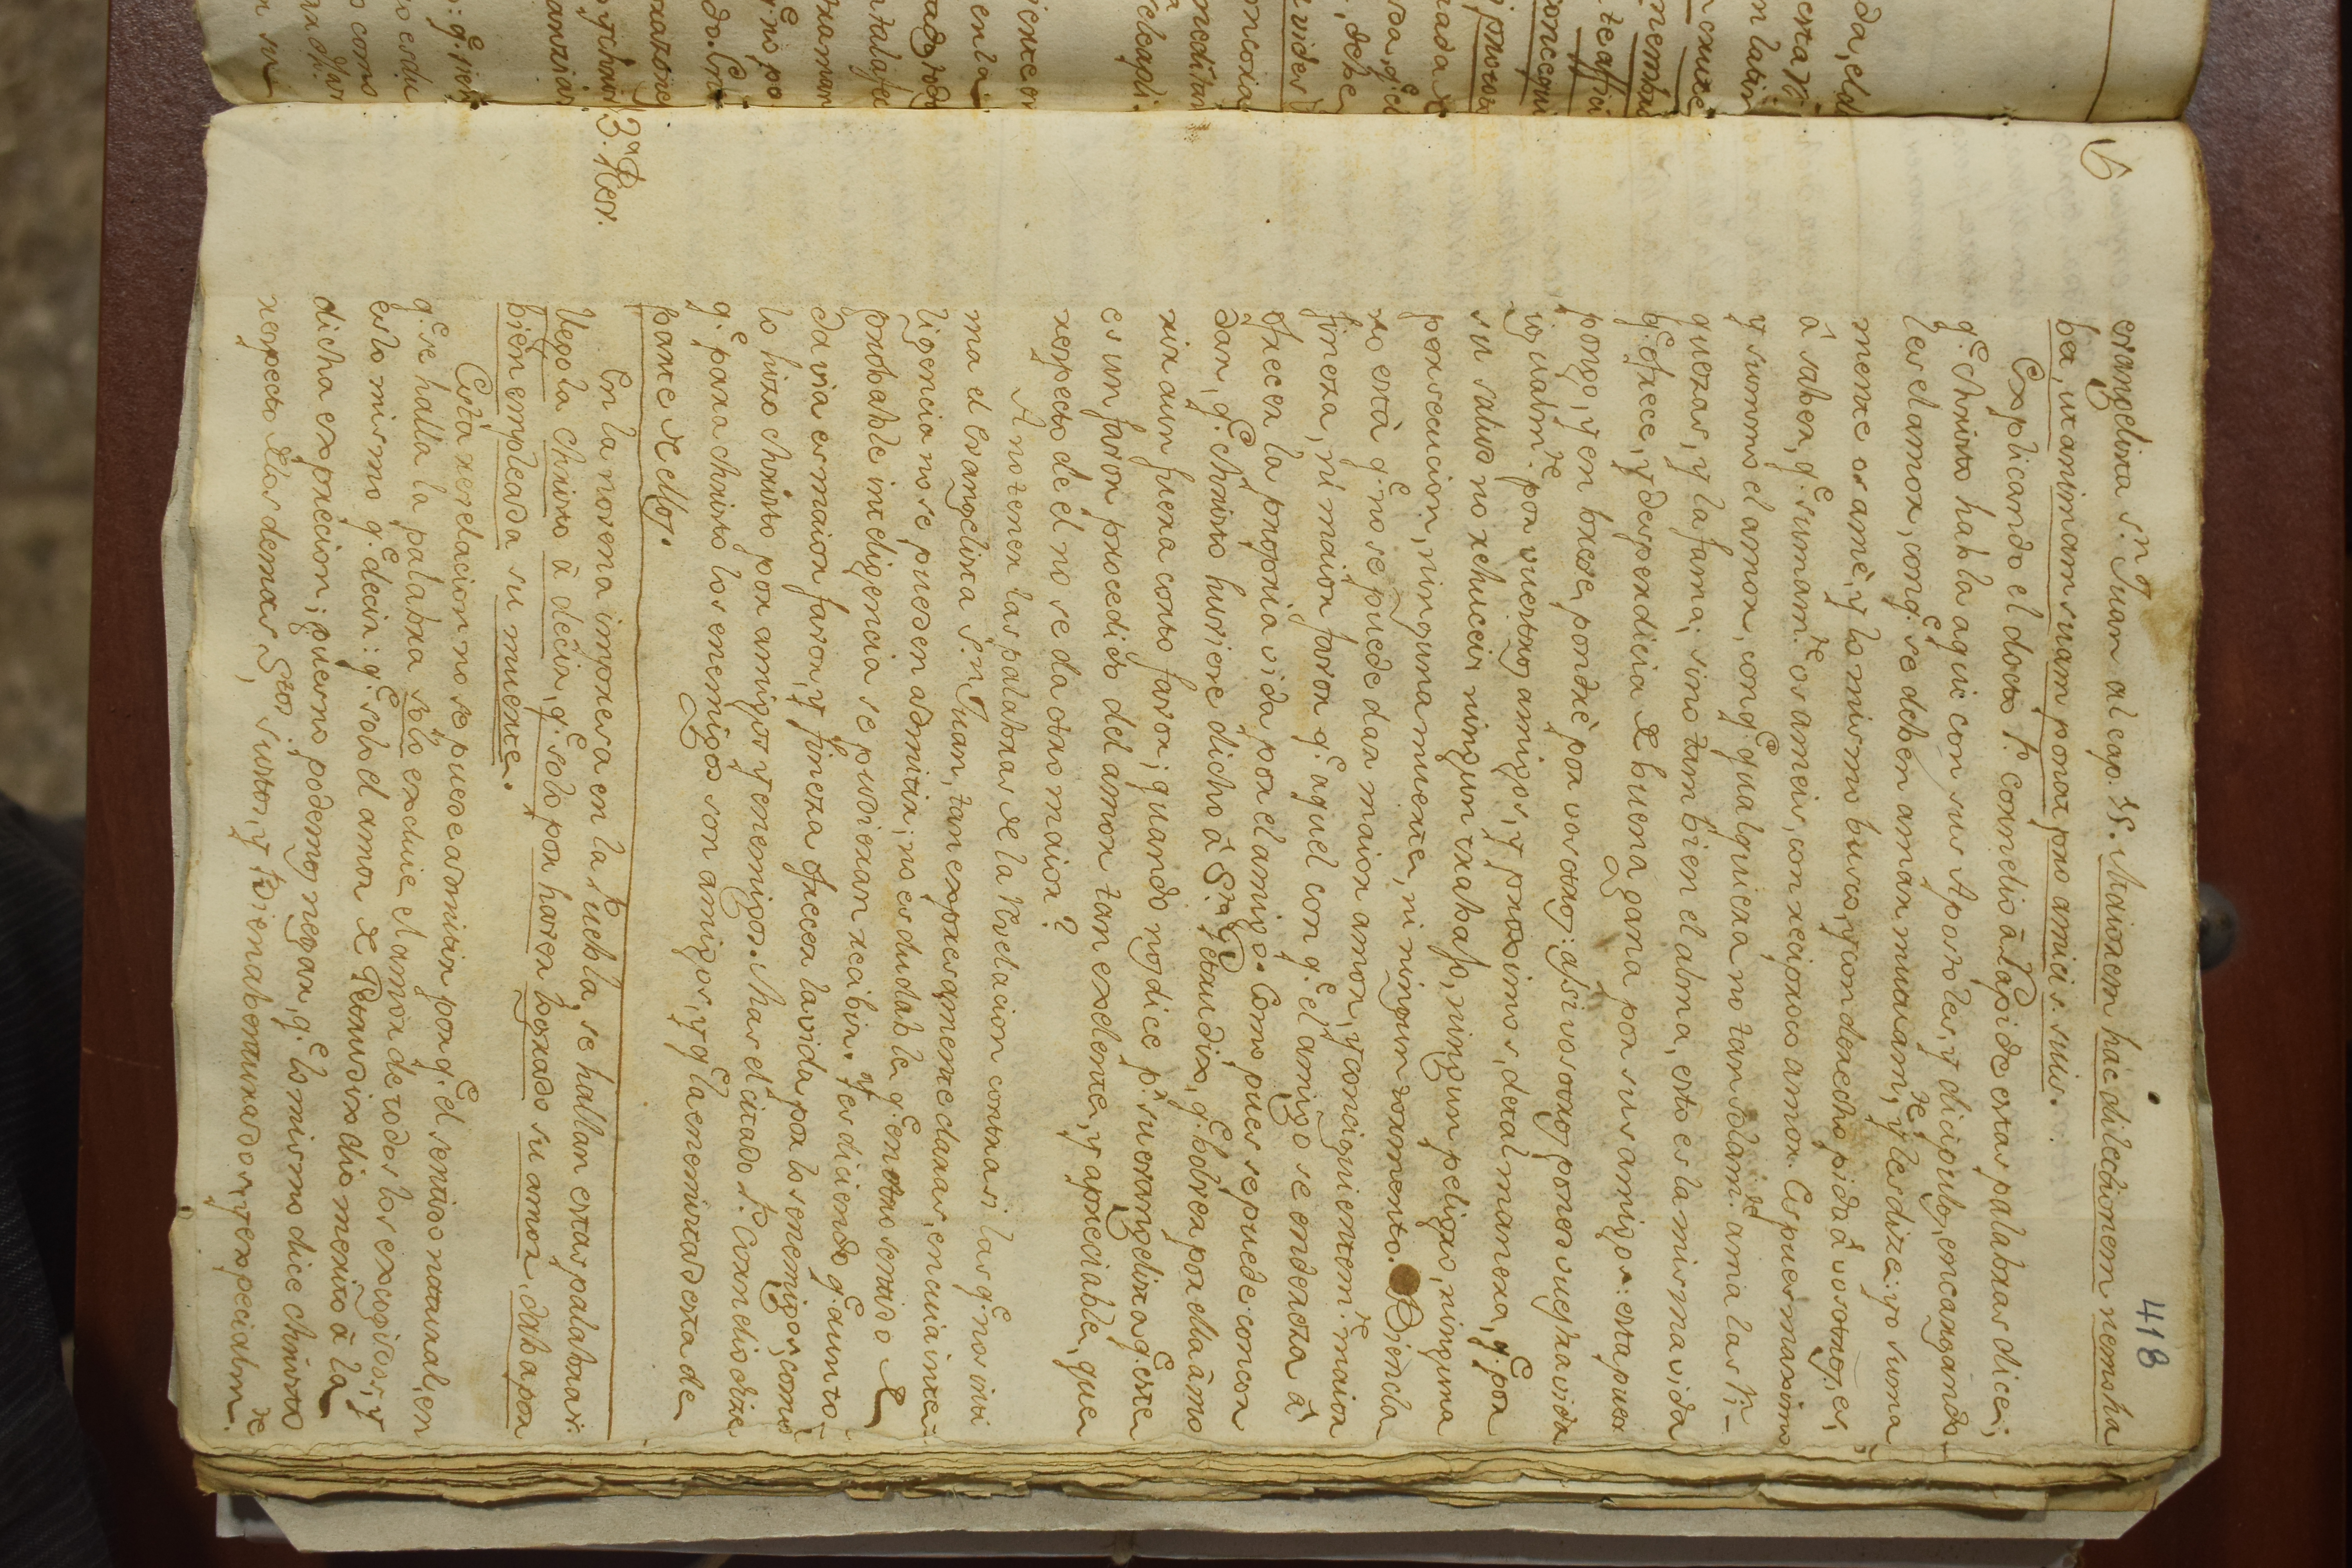 418
evangelista S.n Juan al cap. 15. Maiorem hac dilectionem nemo ha
bet, ut animam suam ponat pro amicis suis.
Explicando el docto P. Cornelio à Lapide estas palabras dice;
q.e christo habla aqui con sus Apostoles, y dicipulos, encargando-
les el amor, con q.e se deben amàr mutuam.te, y les dize: yo suma
mente os amè, y lo mismo busco, y con derecho pido à vosotros, es,
à saber, q.e sumam.te os ameis, con reciproco amor. Es pues maximo
y summo el amor, con q.e qualquiera no tan solam.te ama las ri-
quezas, y la fama, sino tambien el alma, esto es la misma vida
q.e ofrece, y desperdicia de buena gana por sus amigos: esta pues
pongo, y en breve pondrè por vosotros: assi vosotros poned vuestra vida
igualm.te por vuestros amigos, y proximos, de tal manera, q.e por
su salud no rehuceis ningun trabajo, ningun peligro, ninguna
persecucion, ninguna muerte, ni ningun tormento. Bien cla
ro està q.e no se puede dar maior amor, y conciguientem.te maior
fineza, ni maior favor q.e aquel con q.e el amigo se endereza à
ofrecer la propria vida por el amigo. Como pues se puede concor
dar, q.e christo huviere dicho à S.ta Getrudix, q.e bolver por ella à mo
rir aun fuera corto favor; quando nos dice p.r su evangelista q.e este
es un favor procedido del amor tan exelente, y apreciable, que
respecto de èl no se da otro maior?
A no tener las palabras de la Revelacion contra si las q.e nos inti
ma el evangelista S.n Juan, tan expresamente claras, en cuia inte-
ligencia no se pueden admitir; no es dudable q.e en otro sentido de
probable inteligencia se pudieran recibir. Y es diciendo q.e aun to-
davia es maior favor, y fineza ofrecer la vida por los enemigos, como
lo hizo christo por amigos y enemigos. Mas el citado P. Cornelio dize
q.e para christo los enemigos son amigos, y q.e la enemistad esta de
parte de ellos.
3.a Rev. En la novena impresa en la Puebla, se hallan estas palabras:
Llegola christo à decir, q.e solo por haver logrado su amor, daba por
bien empleada su muerte.
Esta revelacion no se puede admitir por q.e el sentido natural, en
q.e se halla la palabra solo exclude el amor de todos los escogidos, y
esto mismo q.e decir: q.e solo el amor de Getrudix dio merito à la
dicha exprecion; pues no podemos negar, q.e lo mismo dice christo
respecto de los demas S.tos, justos, y Bienabenturados, y especialm.te